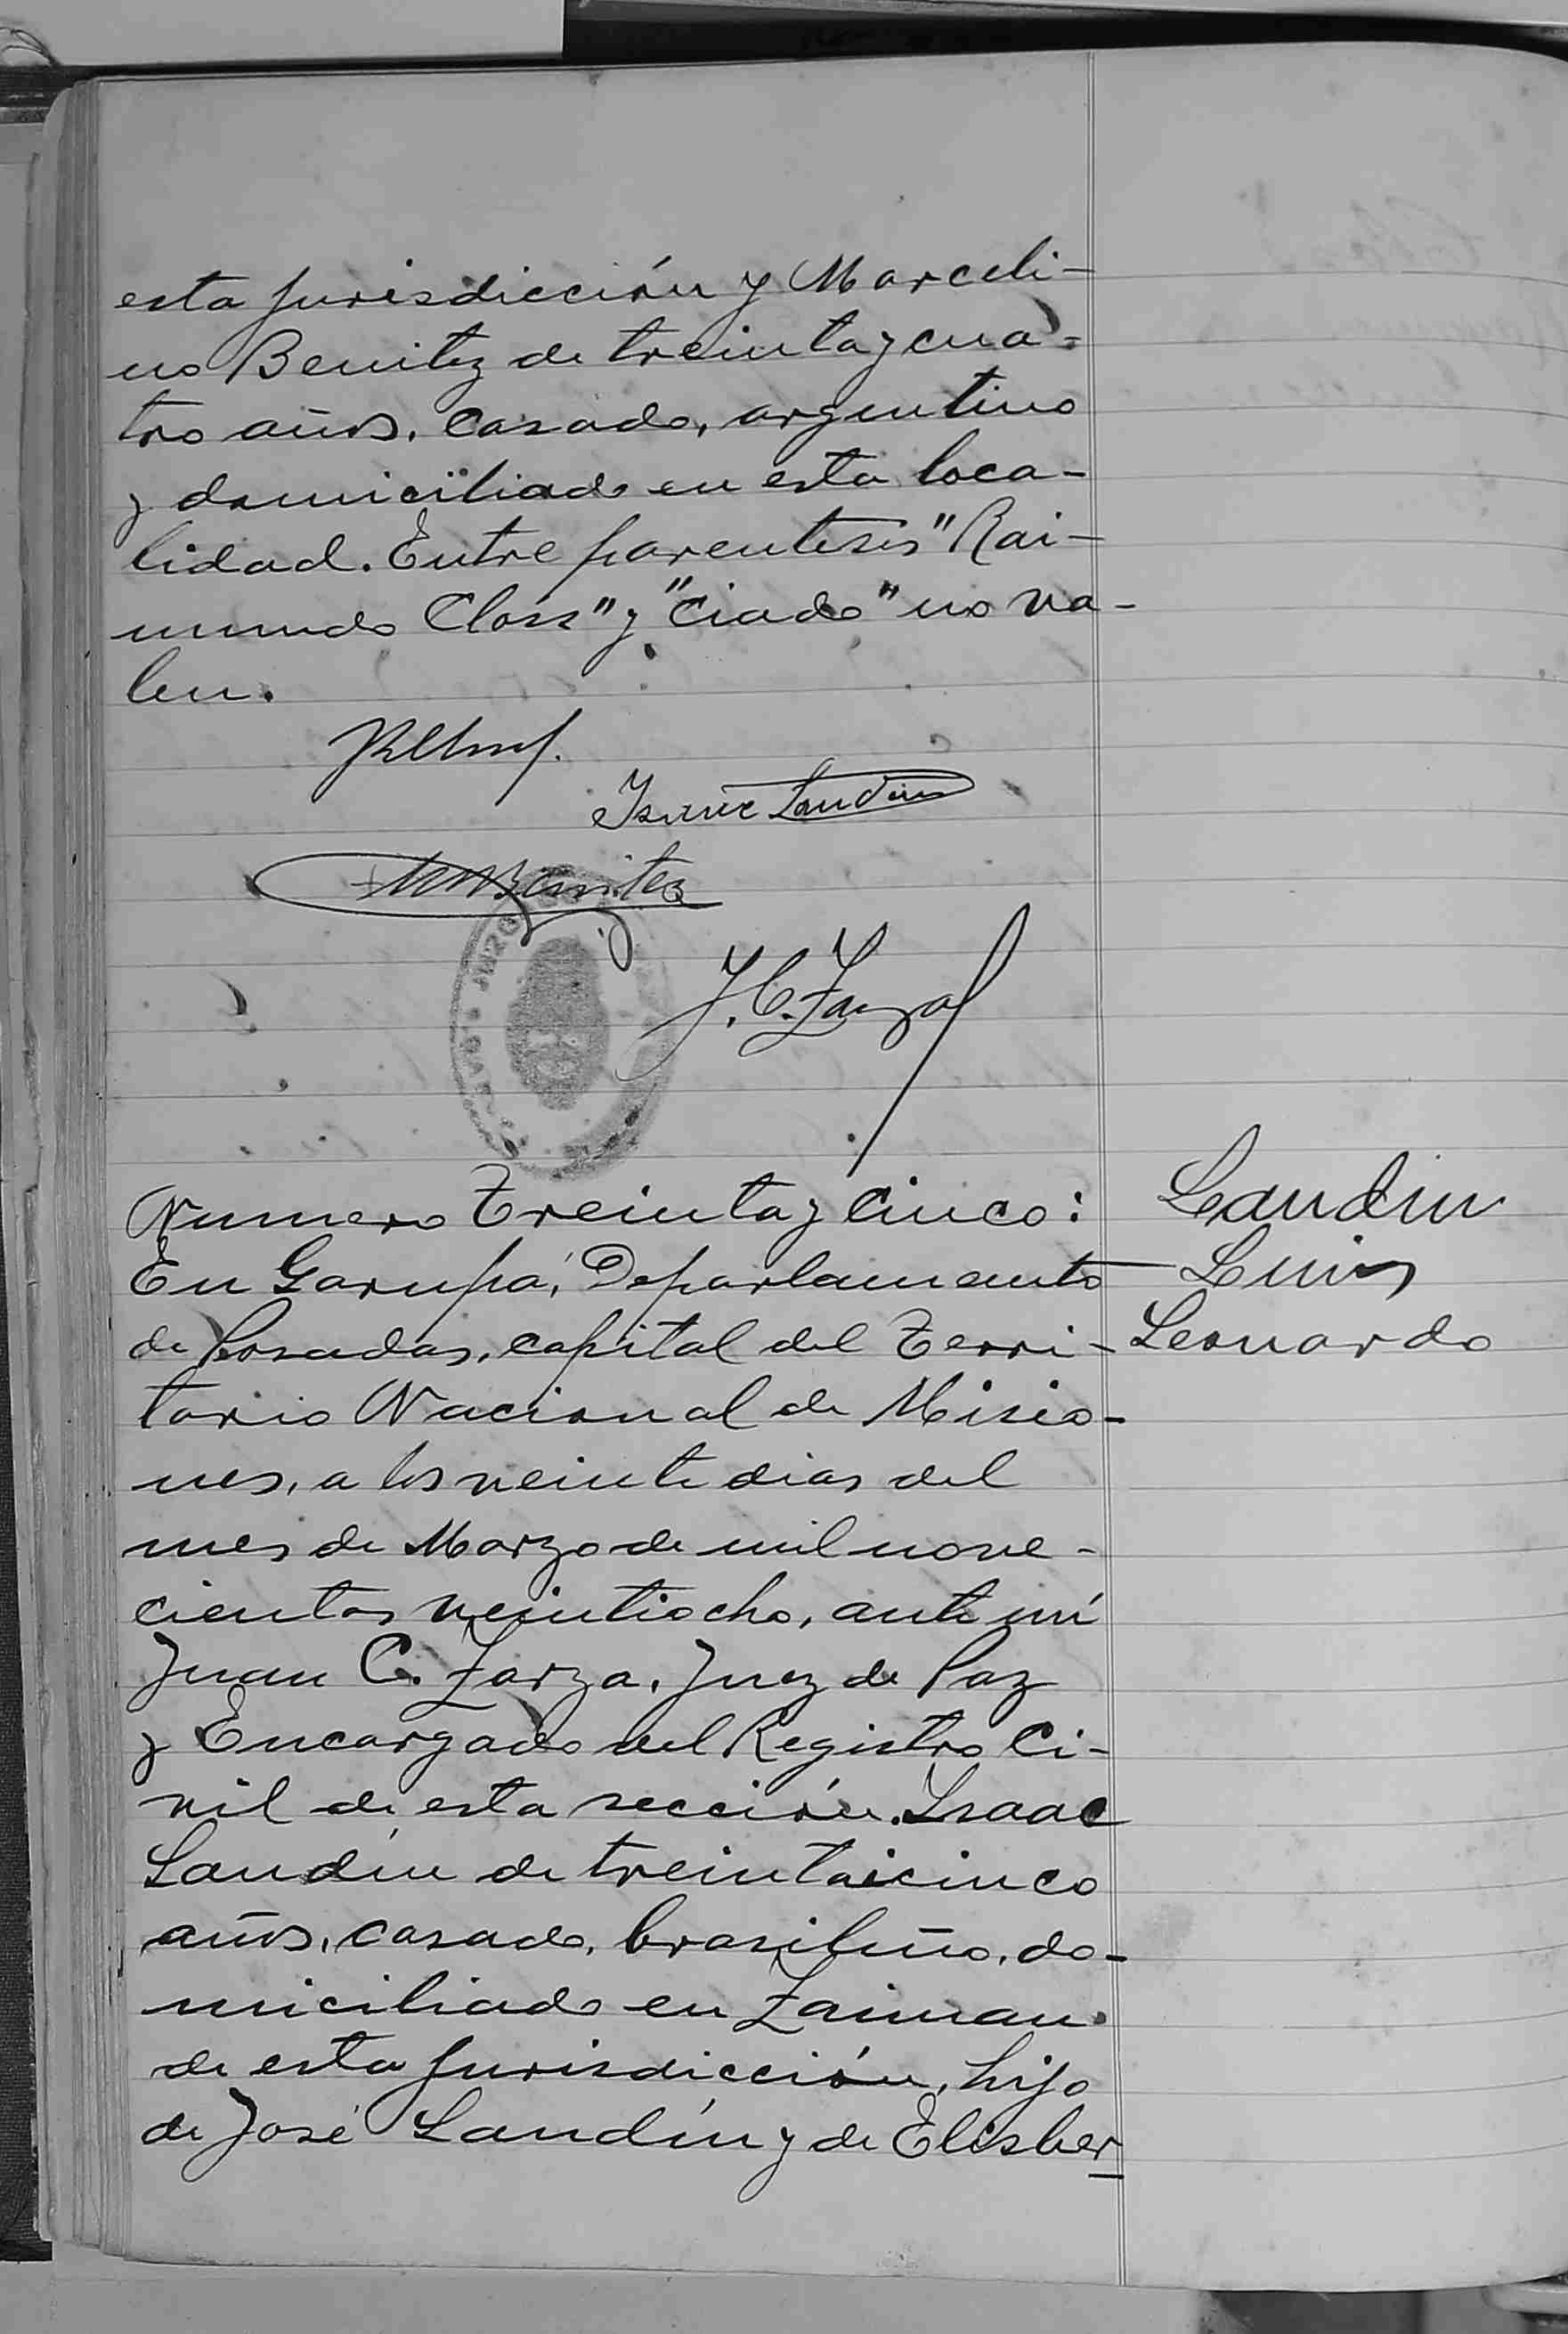 esta jurisdicción y Marceli-
no Benitez de treinta y cua-
tro años, casado, argentino
y domiciliado en esta loca-
lidad. Entre parentesis "Rai-
mundo Closs" y "ciado" no va-
len.
Isaac Landin
Benitez
J. C. Zarza
Numero Treinta y Cinco:
En Garupá, Departamento
de Posadas, capital del Terri-
torio Nacional de Misio-
nes, a los veinte dias del
mes de Marzo de mil nove-
cientos veintiocho, ante mí
Juan C. Zarza, Juez de Paz
y Encargado del Registro Ci-
vil de esta sección. Isaac
Landín de treintaicinco
años, casado, brasileño, do-
miciliado en Zaiman
de esta jurisdicción, hijo
de José Landín y de Elisber
Landin
Luis
Leonardo